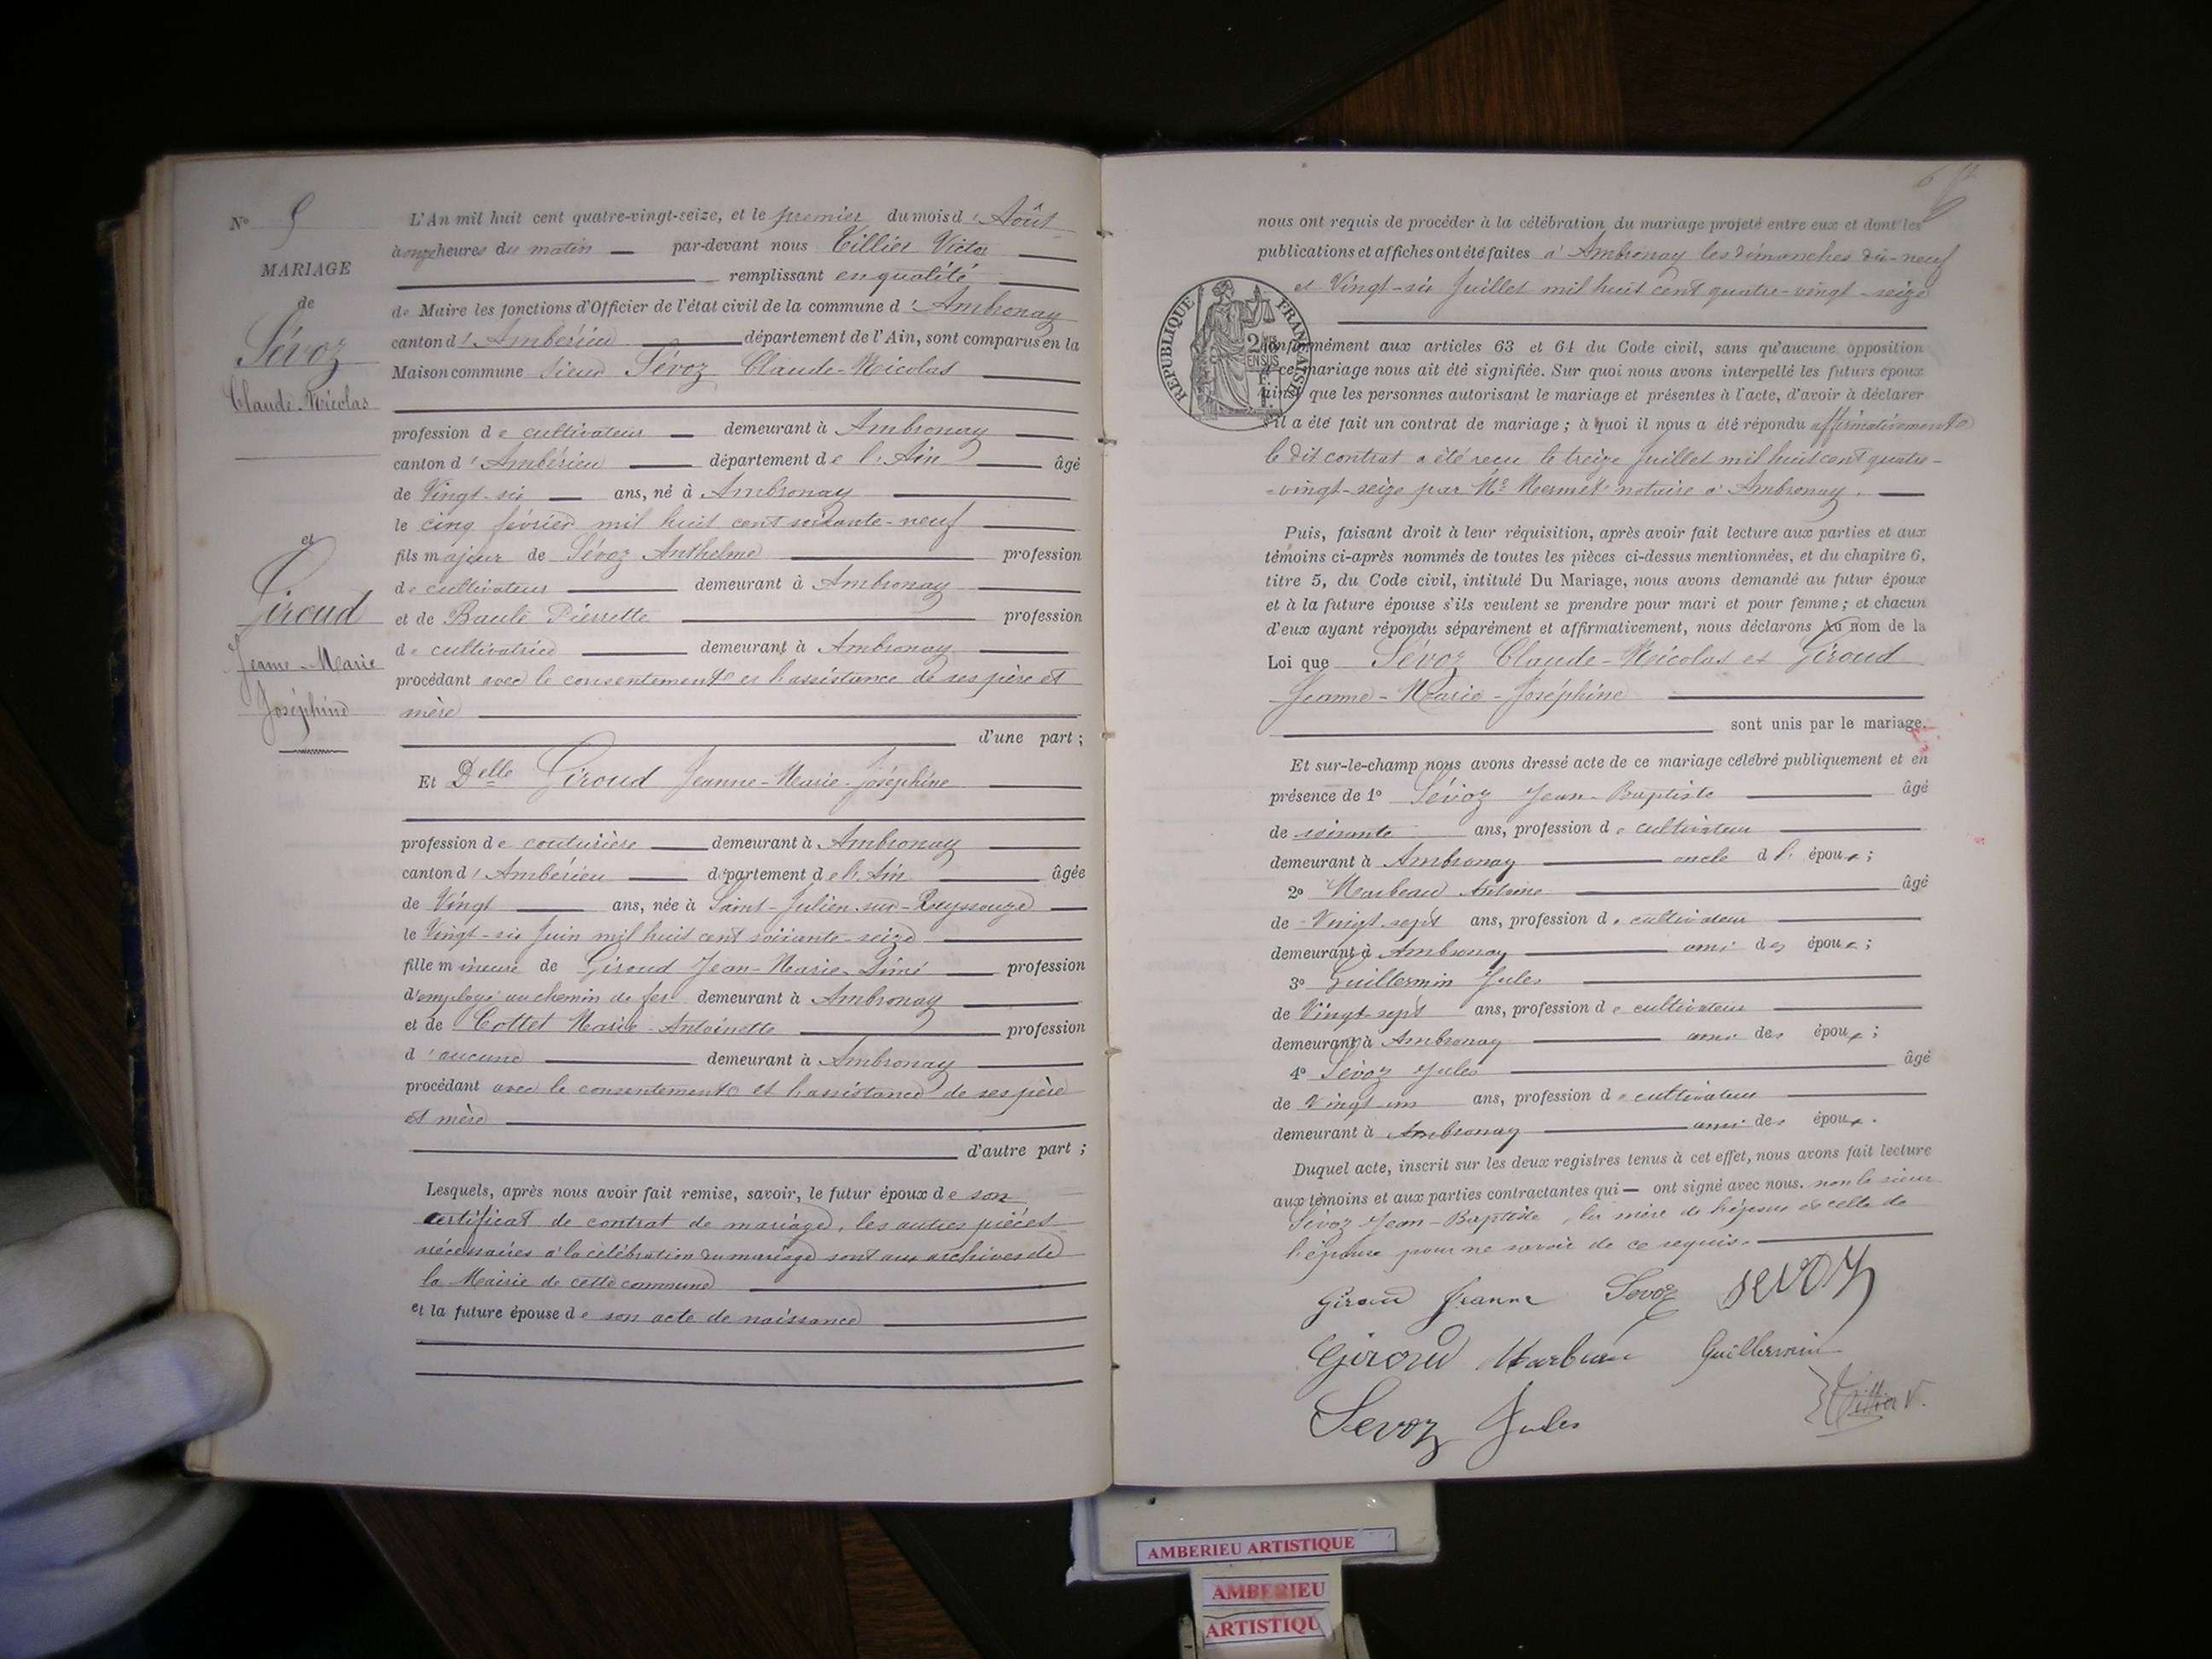 N° 9
MARIAGE
de
Sévoz
Claude-Nicolas
et
Giroud
Jeanne-Marie
Joséphine
L'An mil huit cent quatre-vingt-seize, et le premier du mois d'Août
à onze heures du matin par-devant nous Tillier Victor
remplissant en qualité
de Maire les fonctions d'Officier de l'état civil de la commune d'Ambronay
canton d'Ambérieu département de l'Ain, sont comparus en la
Maison commune sieur Sévoz Claude-Nicolas
profession de cultivateur demeurant à Ambronay
canton d'Ambérieu département de l'Ain âgé
de Vingt-six ans, né à Ambronay
le cinq février mil huit cent soixante-neuf
fils majeur de Sévoz Anthelme profession
de cultivateur demeurant à Ambronay
et de Pierrette profession
de cultivatrice demeurant à Ambronay
procédant avec le consentement et l'assistance de ses père et
mère
d'une part ;
Et Delle Giroud Jeanne-Marie-Joséphine
profession de couturière demeurant à Ambronay
canton d'Ambérieu département de l'Ain âgée
de Vingt ans, née à Saint-Julien-sur-Reyssouze
le Vingt-six Juin mil huit cent soixante-seize
fille mineure de Giroud Jean-Marie profession
d'employé au chemin de fer demeurant à Ambronay
et de Cottet Marie-Antoinette profession
d'aucune demeurant à Ambronay
procédant avec le consentement et l'assistance de ses père
et mère
d'autre part ;
Lesquels, après nous avoir fait remise, savoir, le futur époux de son
certificat de contrat de mariage, les autres pièces
nécessaires à la célébration du mariage sont aux archives de
la Mairie de cette commune
et la future épouse de son acte de naissance
nous ont requis de procéder à la célébration du mariage projeté entre eux et dont les
publications et affiches ont été faites à Ambronay les dimanches dix-neuf
et Vingt-six Juillet mil huit cent quatre-vingt-seize
REPUBLIQUE FRANÇAISE
conformément aux articles 63 et 64 du Code civil, sans qu'aucune opposition
à ce mariage nous ait été signifiée. Sur quoi nous avons interpellé les futurs époux
ainsi que les personnes autorisant le mariage et présentes à l'acte, d'avoir à déclarer
s'il a été fait un contrat de mariage ; à quoi il nous a été répondu affirmativement
le dit contrat a été reçu le treize juillet mil huit cent quatre-
-vingt-seize par Me Mermet notaire à Ambronay.
Puis, faisant droit à leur réquisition, après avoir fait lecture aux parties et aux
témoins ci-après nommés de toutes les pièces ci-dessus mentionnées, et du chapitre 6,
titre 5, du Code civil, intitulé Du Mariage, nous avons demandé au futur époux
et à la future épouse s'ils veulent se prendre pour mari et pour femme ; et chacun
d'eux ayant répondu séparément et affirmativement, nous déclarons Au nom de la
Loi que Sévoz Claude-Nicolas et Giroud
Jeanne-Marie-Joséphine
sont unis par le mariage.
Et sur-le-champ nous avons dressé acte de ce mariage célébré publiquement et en
présence de 1° Sévoz Jean-Baptiste âgé
de soixante ans, profession de cultivateur
demeurant à Ambronay oncle d l' époux ;
2° Marbeau Antoine âgé
de Vingt-sept ans, profession de cultivateur
demeurant à Ambronay ami des époux ;
3° Guillermin Jules
de Vingt-sept ans, profession de cultivateur
demeurant à Ambronay ami des époux ;
4° Sévoz Jules âgé
de Vingt-un ans, profession de cultivateur
demeurant à Ambronay ami des époux.
Duquel acte, inscrit sur les deux registres tenus à cet effet, nous avons fait lecture
aux témoins et aux parties contractantes qui ont signé avec nous. non le sieur
Sévoz Jean-Baptiste, la mère de l'époux et celle de
l'épouse pour ne savoir de ce requis.
Giroud Jeanne Sevoz SEVOZ
Giroud Marbeau Guillermin
Sevoz Jules Tillier V.
AMBERIEU ARTISTIQUE
AMBERIEU
ARTISTIQU